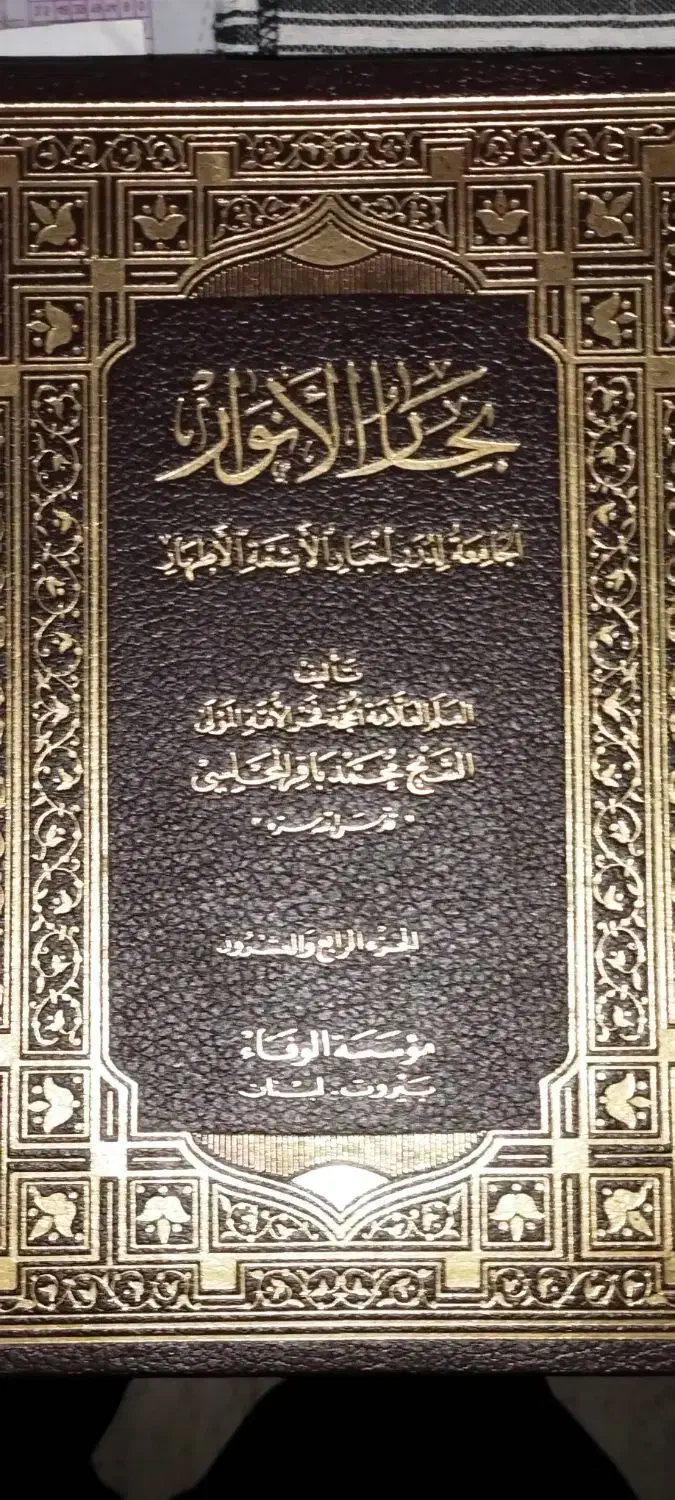 بحار الأنوار
الجامعة لدرر أخبار الأئمة الأطهار
تأليف
العلم العلامة الحجة فخر الأمة المولى
الشيخ محمد باقر المجلسي
" قدس الله سره "
الجزء الرابع والعشرون
مؤسسة الوفاء
بيروت - لبنان